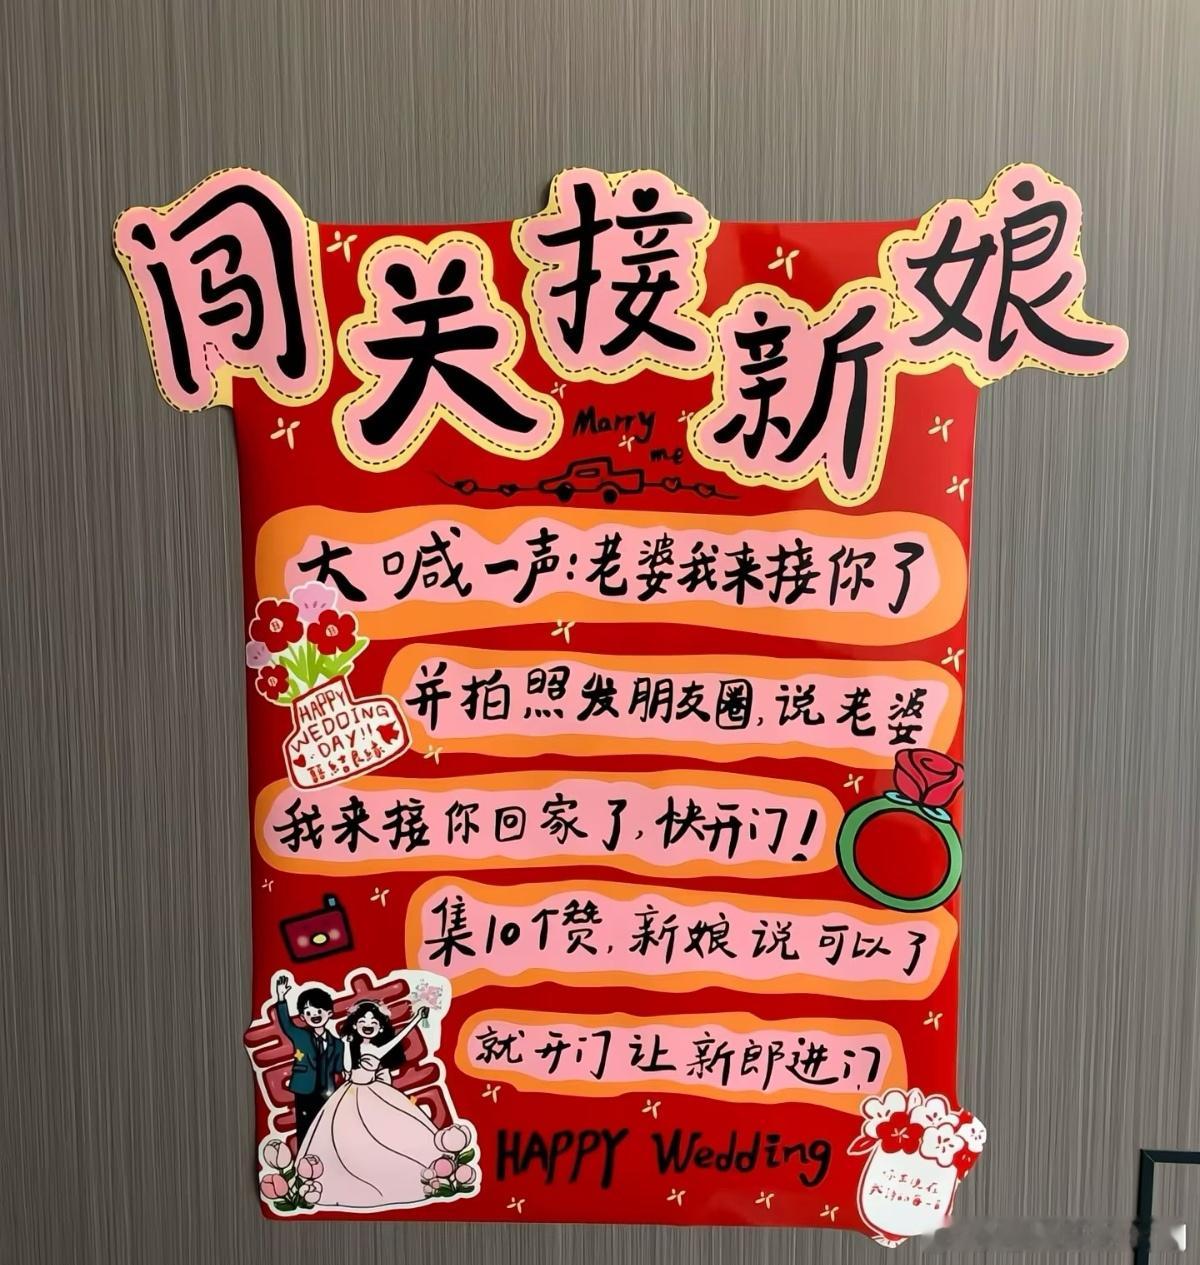 闯关接新娘
Marry
me
大喊一声:老婆我来接你了
并拍照发朋友圈,说老婆
HAPPY
WEDDING
DAY!!
囍结良缘
我来接你回家了,快开门!
集10个赞,新娘说可以了
就开门让新郎进门
HAPPY Wedding